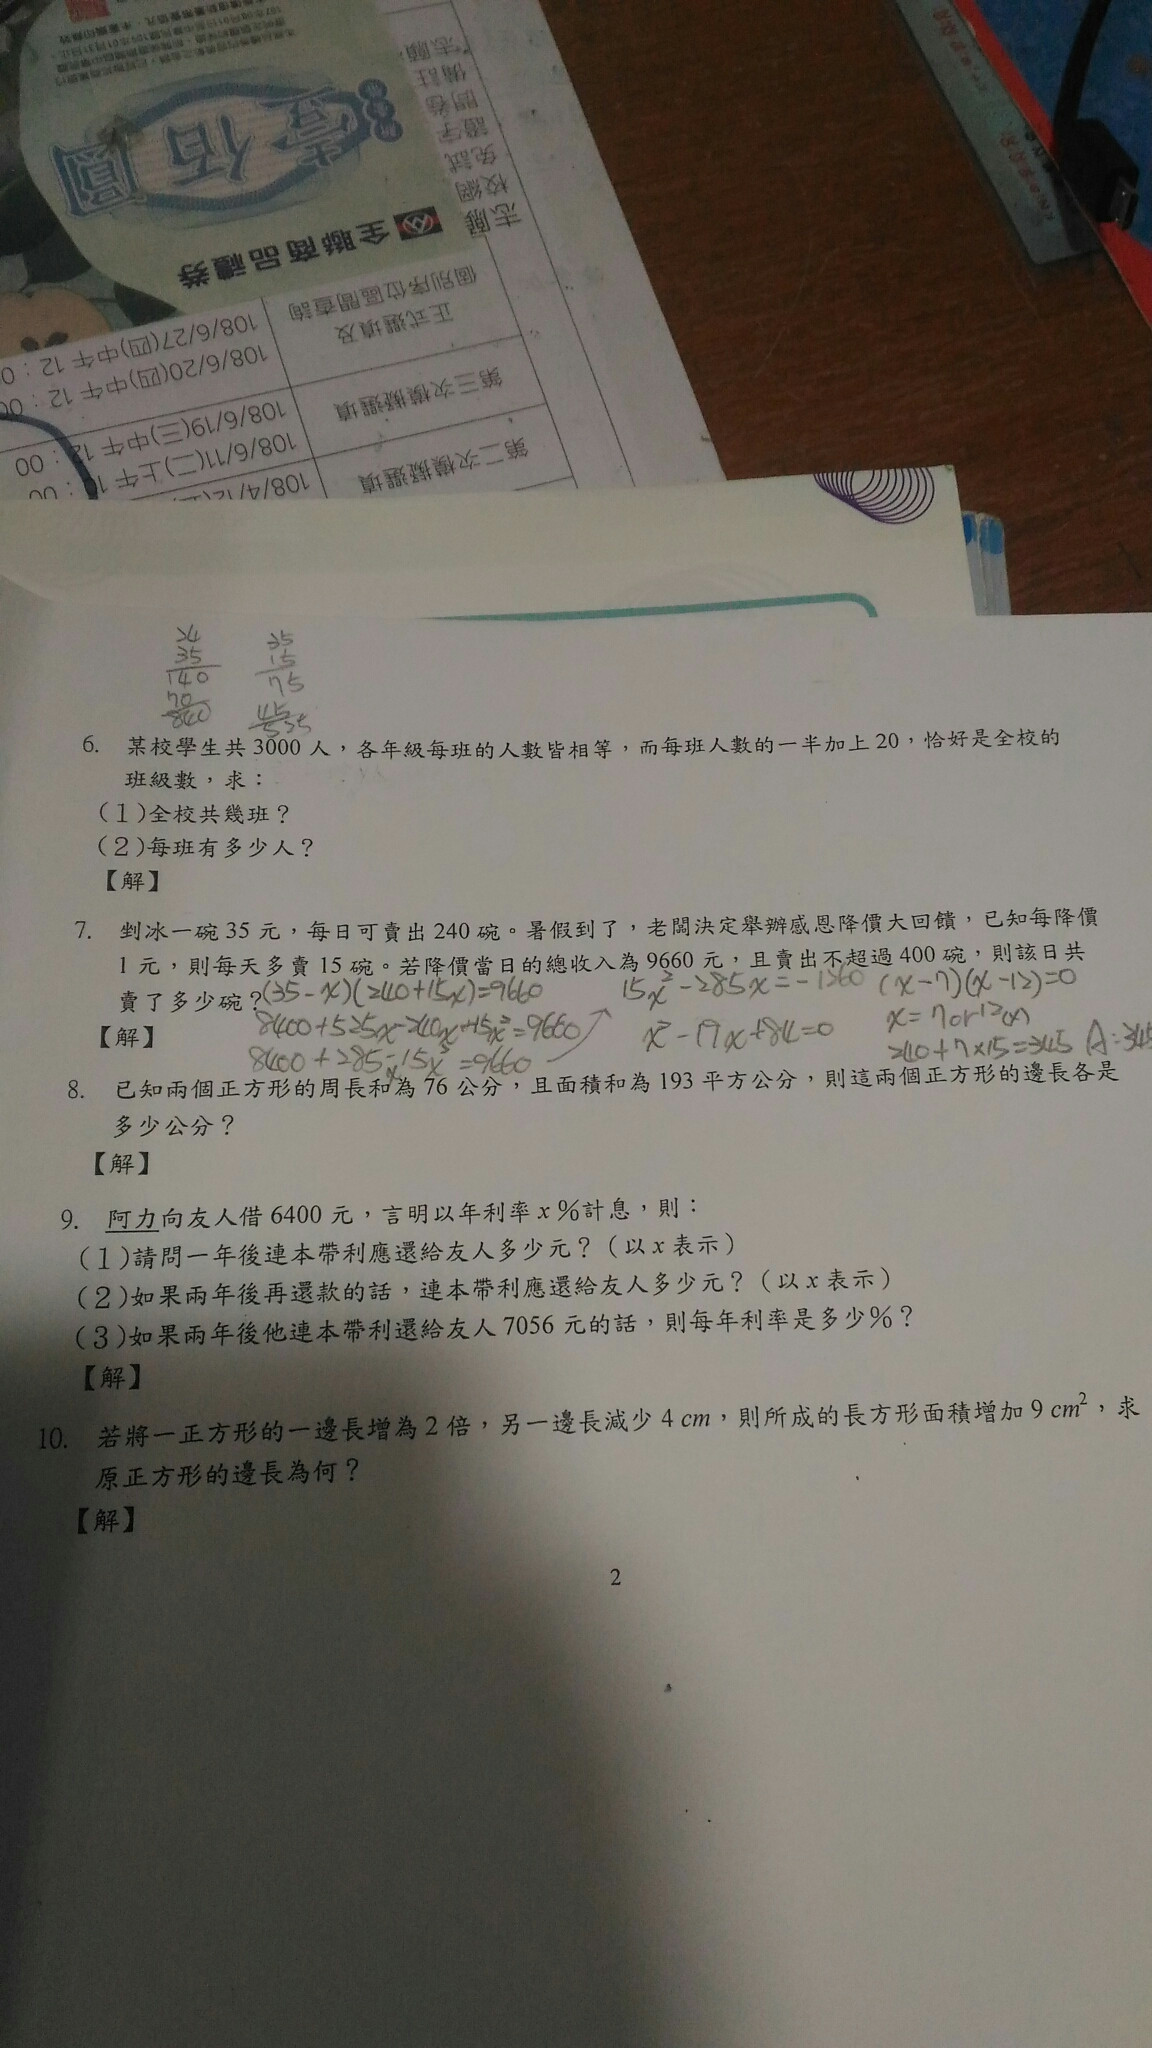 壹佰圓
全聯商品禮券
志願
校網
免試
證字
問卷
備註
"志願
正式選填及
個別序位區間查詢
108/6/27(四)中午12:0
108/6/20(四)中午12:00
第三次模擬選填
108/6/19(三)中午12:00
108/6/11(二)上午10:00
第二次模擬選填
24
35
140
840
35
15
75
6. 某校學生共3000人,各年級每班的人數皆相等,而每班人數的一半加上20,恰好是全校的
班級數,求:
(1)全校共幾班?
(2)每班有多少人?
【解】
7. 剉冰一碗35元,每日可賣出240碗。暑假到了,老闆決定舉辦感恩降價大回饋,已知每降價
1元,則每天多賣15碗。若降價當日的總收入為9660元,且賣出不超過400碗,則該日共
賣了多少碗?(35-x)(240+15x)=9660 15x²-285x=-1260 (x-7)(x-12)=0
【解】 8400+525x-240x-15x²=9660 x²-19x+84=0 x=7or12(x)
8400+285x-15x²=9660 240+7×15=345 A:345
8. 已知兩個正方形的周長和為76公分,且面積和為193平方公分,則這兩個正方形的邊長各是
多少公分?
【解】
9. 阿力向友人借6400元,言明以年利率x%計息,則:
(1)請問一年後連本帶利應還給友人多少元?(以x表示)
(2)如果兩年後再還款的話,連本帶利應還給友人多少元?(以x表示)
(3)如果兩年後他連本帶利還給友人7056元的話,則每年利率是多少%?
【解】
10. 若將一正方形的一邊長增為2倍,另一邊長減少4 cm,則所成的長方形面積增加9 cm²,求
原正方形的邊長為何?
【解】
2